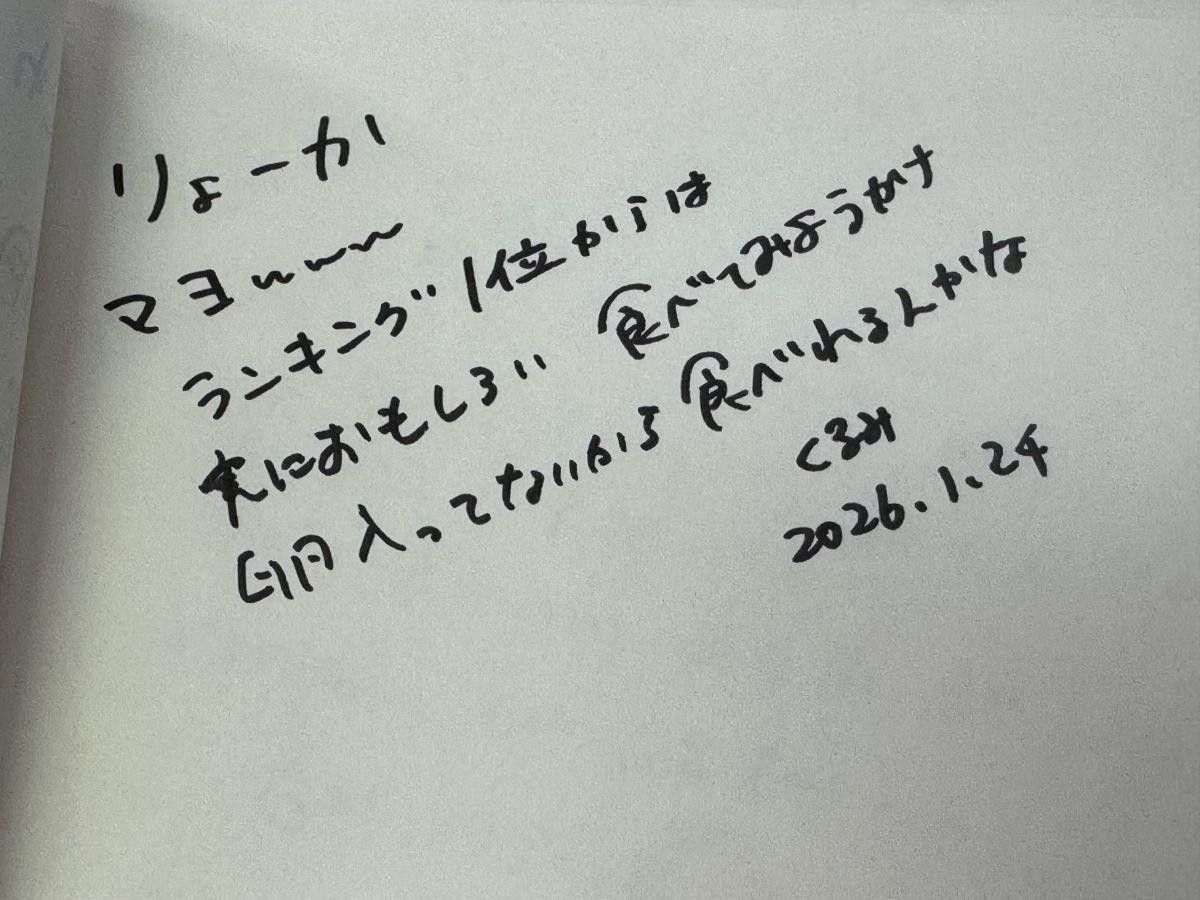 りょーか
マヨ〰〰
ランキング1位からは
実におもしろい 食べてみようかな
卵入ってないから食べれるんかな
くるみ
2026.1.24